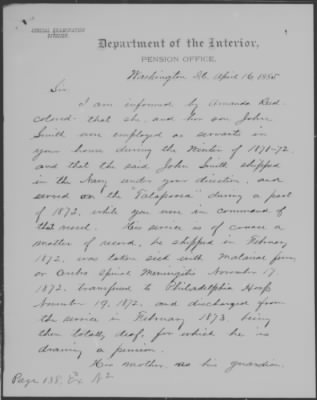 SPECIAL EXAMINATION
DIVISION.
Department of the Interior,
PENSION OFFICE,
Washington D.C. April 16, 1885
Sir.
I am informed by Amanda Reed
colored that she and her son John
Smith were employed as servants in
your house during the Winter of 1871-72
and that the said John Smith shipped
in the Navy under your direction, and
served on the "Talapoosa" during a part
of 1872, while you were in command of
that vessel. His service is of course a
matter of record, he shipped in February
1872, was taken sick with Malarial fever
or Cerebro Spinal Meningitis November 17
1872, transfered to Philadelphia Hosp
November 19, 1872, and discharged from
the service in February 1873 being
then totally deaf, for which he is
drawing a pension.
His mother as his guardian
Page 188, Ex N2